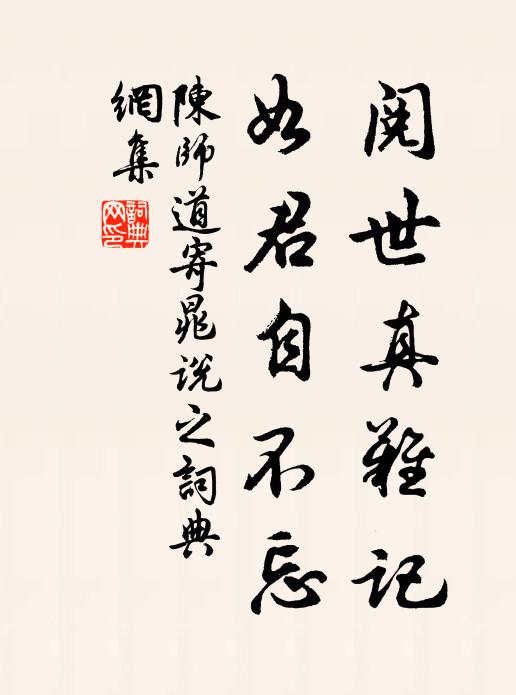 閱世真難記
如君自不忘
陳師道寄晁說之詞典
網集
詞典
网印